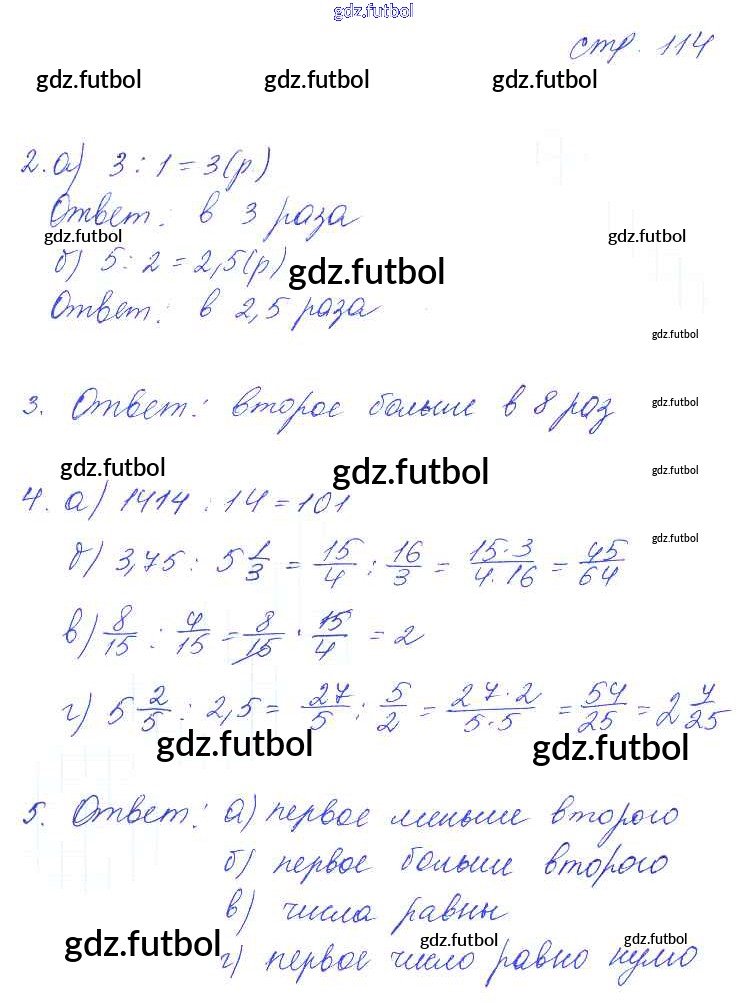 gdz.futbol
стр. 114
gdz.futbol gdz.futbol gdz.futbol
2. а) 3 : 1 = 3 (р.)
Ответ: в 3 раза
gdz.futbol gdz.futbol
б) 5 : 2 = 2,5 (р)
gdz.futbol
Ответ: в 2,5 раза
gdz.futbol
3. Ответ: второе больше в 8 раз
gdz.futbol
gdz.futbol gdz.futbol gdz.futbol
4. а) 1414 : 14 = 101
gdz.futbol
б) 3,75 : 5 1/3 = 15/4 : 16/3 = 15·3/4·16 = 45/64
в) 8/15 : 4/15 = 8/15 · 15/4 = 2
г) 5 2/5 : 2,5 = 27/5 : 5/2 = 27·2/5·5 = 54/25 = 2 4/25
gdz.futbol gdz.futbol
5. Ответ: а) первое меньше второго
б) первое больше второго
в) числа равны
gdz.futbol gdz.futbol gdz.futbol
г) первое число равно нулю